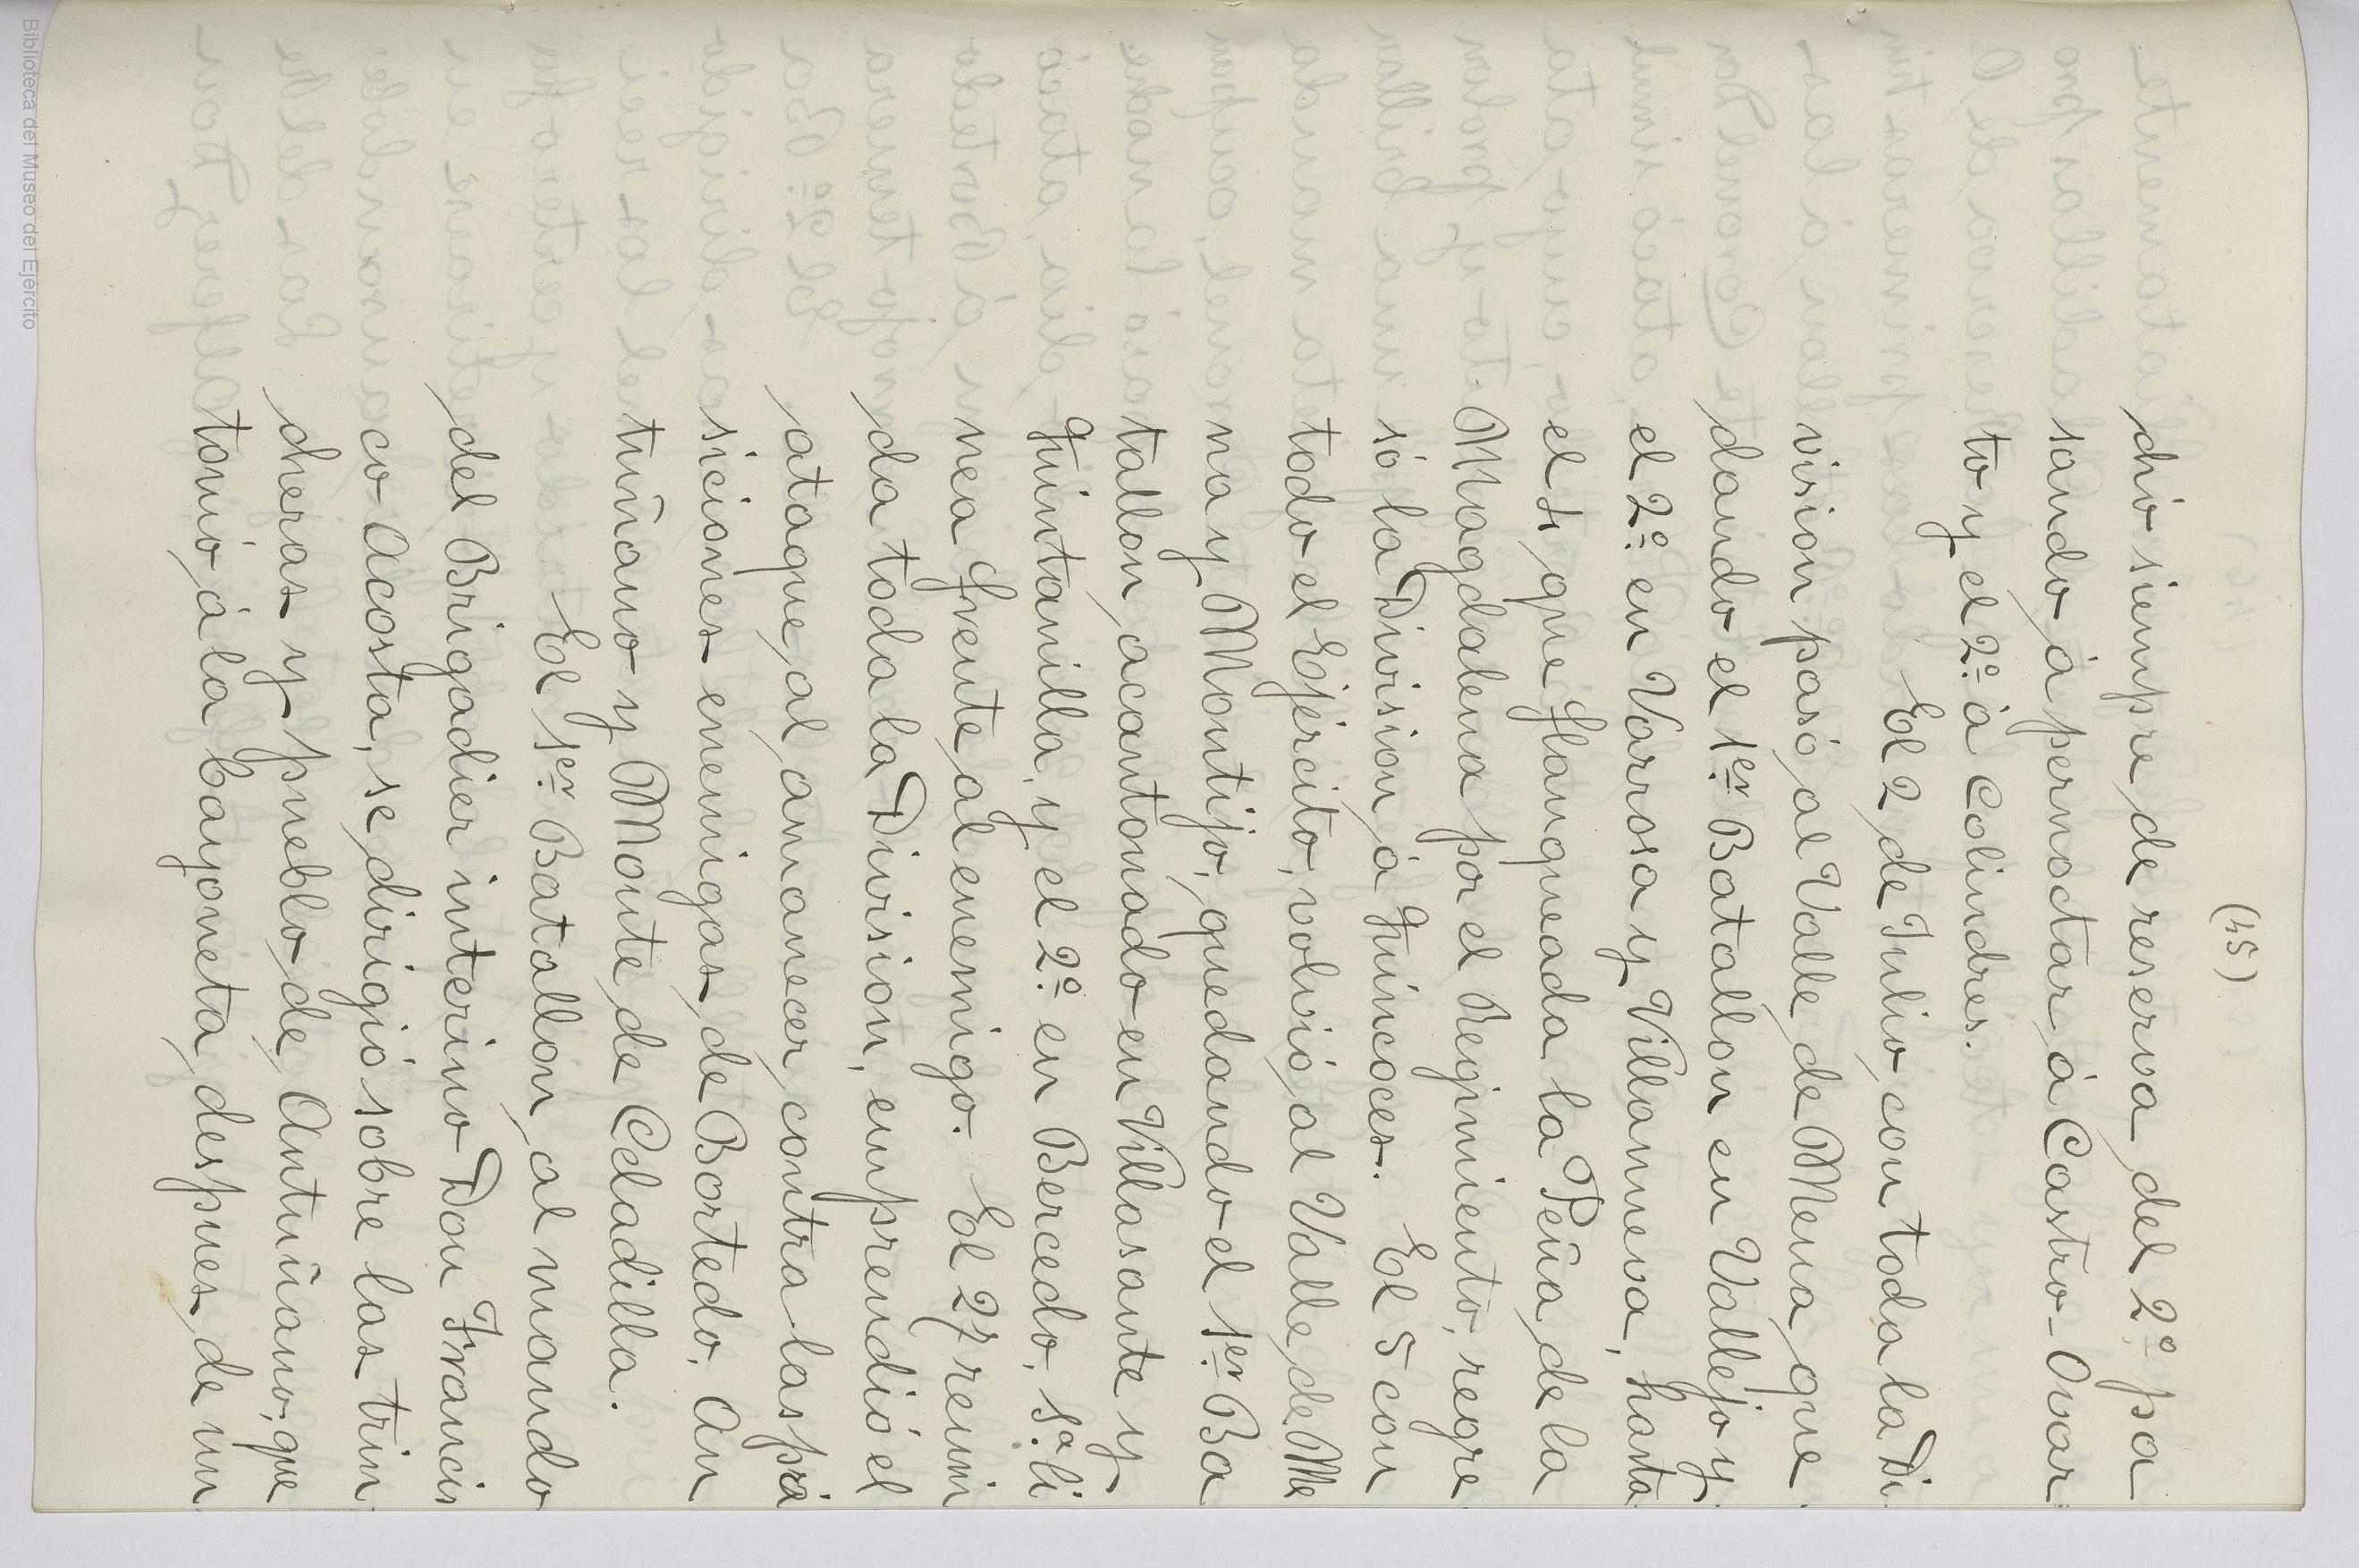 (45)
dió siempre de reserva del 2º pa
sando á pernoctar á Castro-Ovar
to y el 2º á Colindres.
El 2 de Julio con toda la Di
vision pasó al Valle de Mena que
dando el 1er Batallon en Vallejo y
el 2º en Varrosa y Villanueva, hasta
el 4 que flanqueada la Peña de la
Magdalena por el Regimiento, regre
só la Division á Güincoces. El 5 con
todo el Ejército, volvió al Valle de Me
na y Montijo, quedando el 1er Ba
tallon acantonado en Villasante y
Quintanilla, y el 2º en Bercedo, 1ª li
nea frente al enemigo. El 27 reuni
da toda la Division, emprendió el
ataque al amanecer contra las po
siciones enemigas de Bortedo, An
tuñano y Monte de Celadilla.
El 1er Batallon al mando
del Brigadier interino Don Francis
co Acosta, se dirigió sobre las trin
cheras y pueblo de Antuñano, que
tomó á la bayoneta, despues de un
Biblioteca del Museo del Ejército